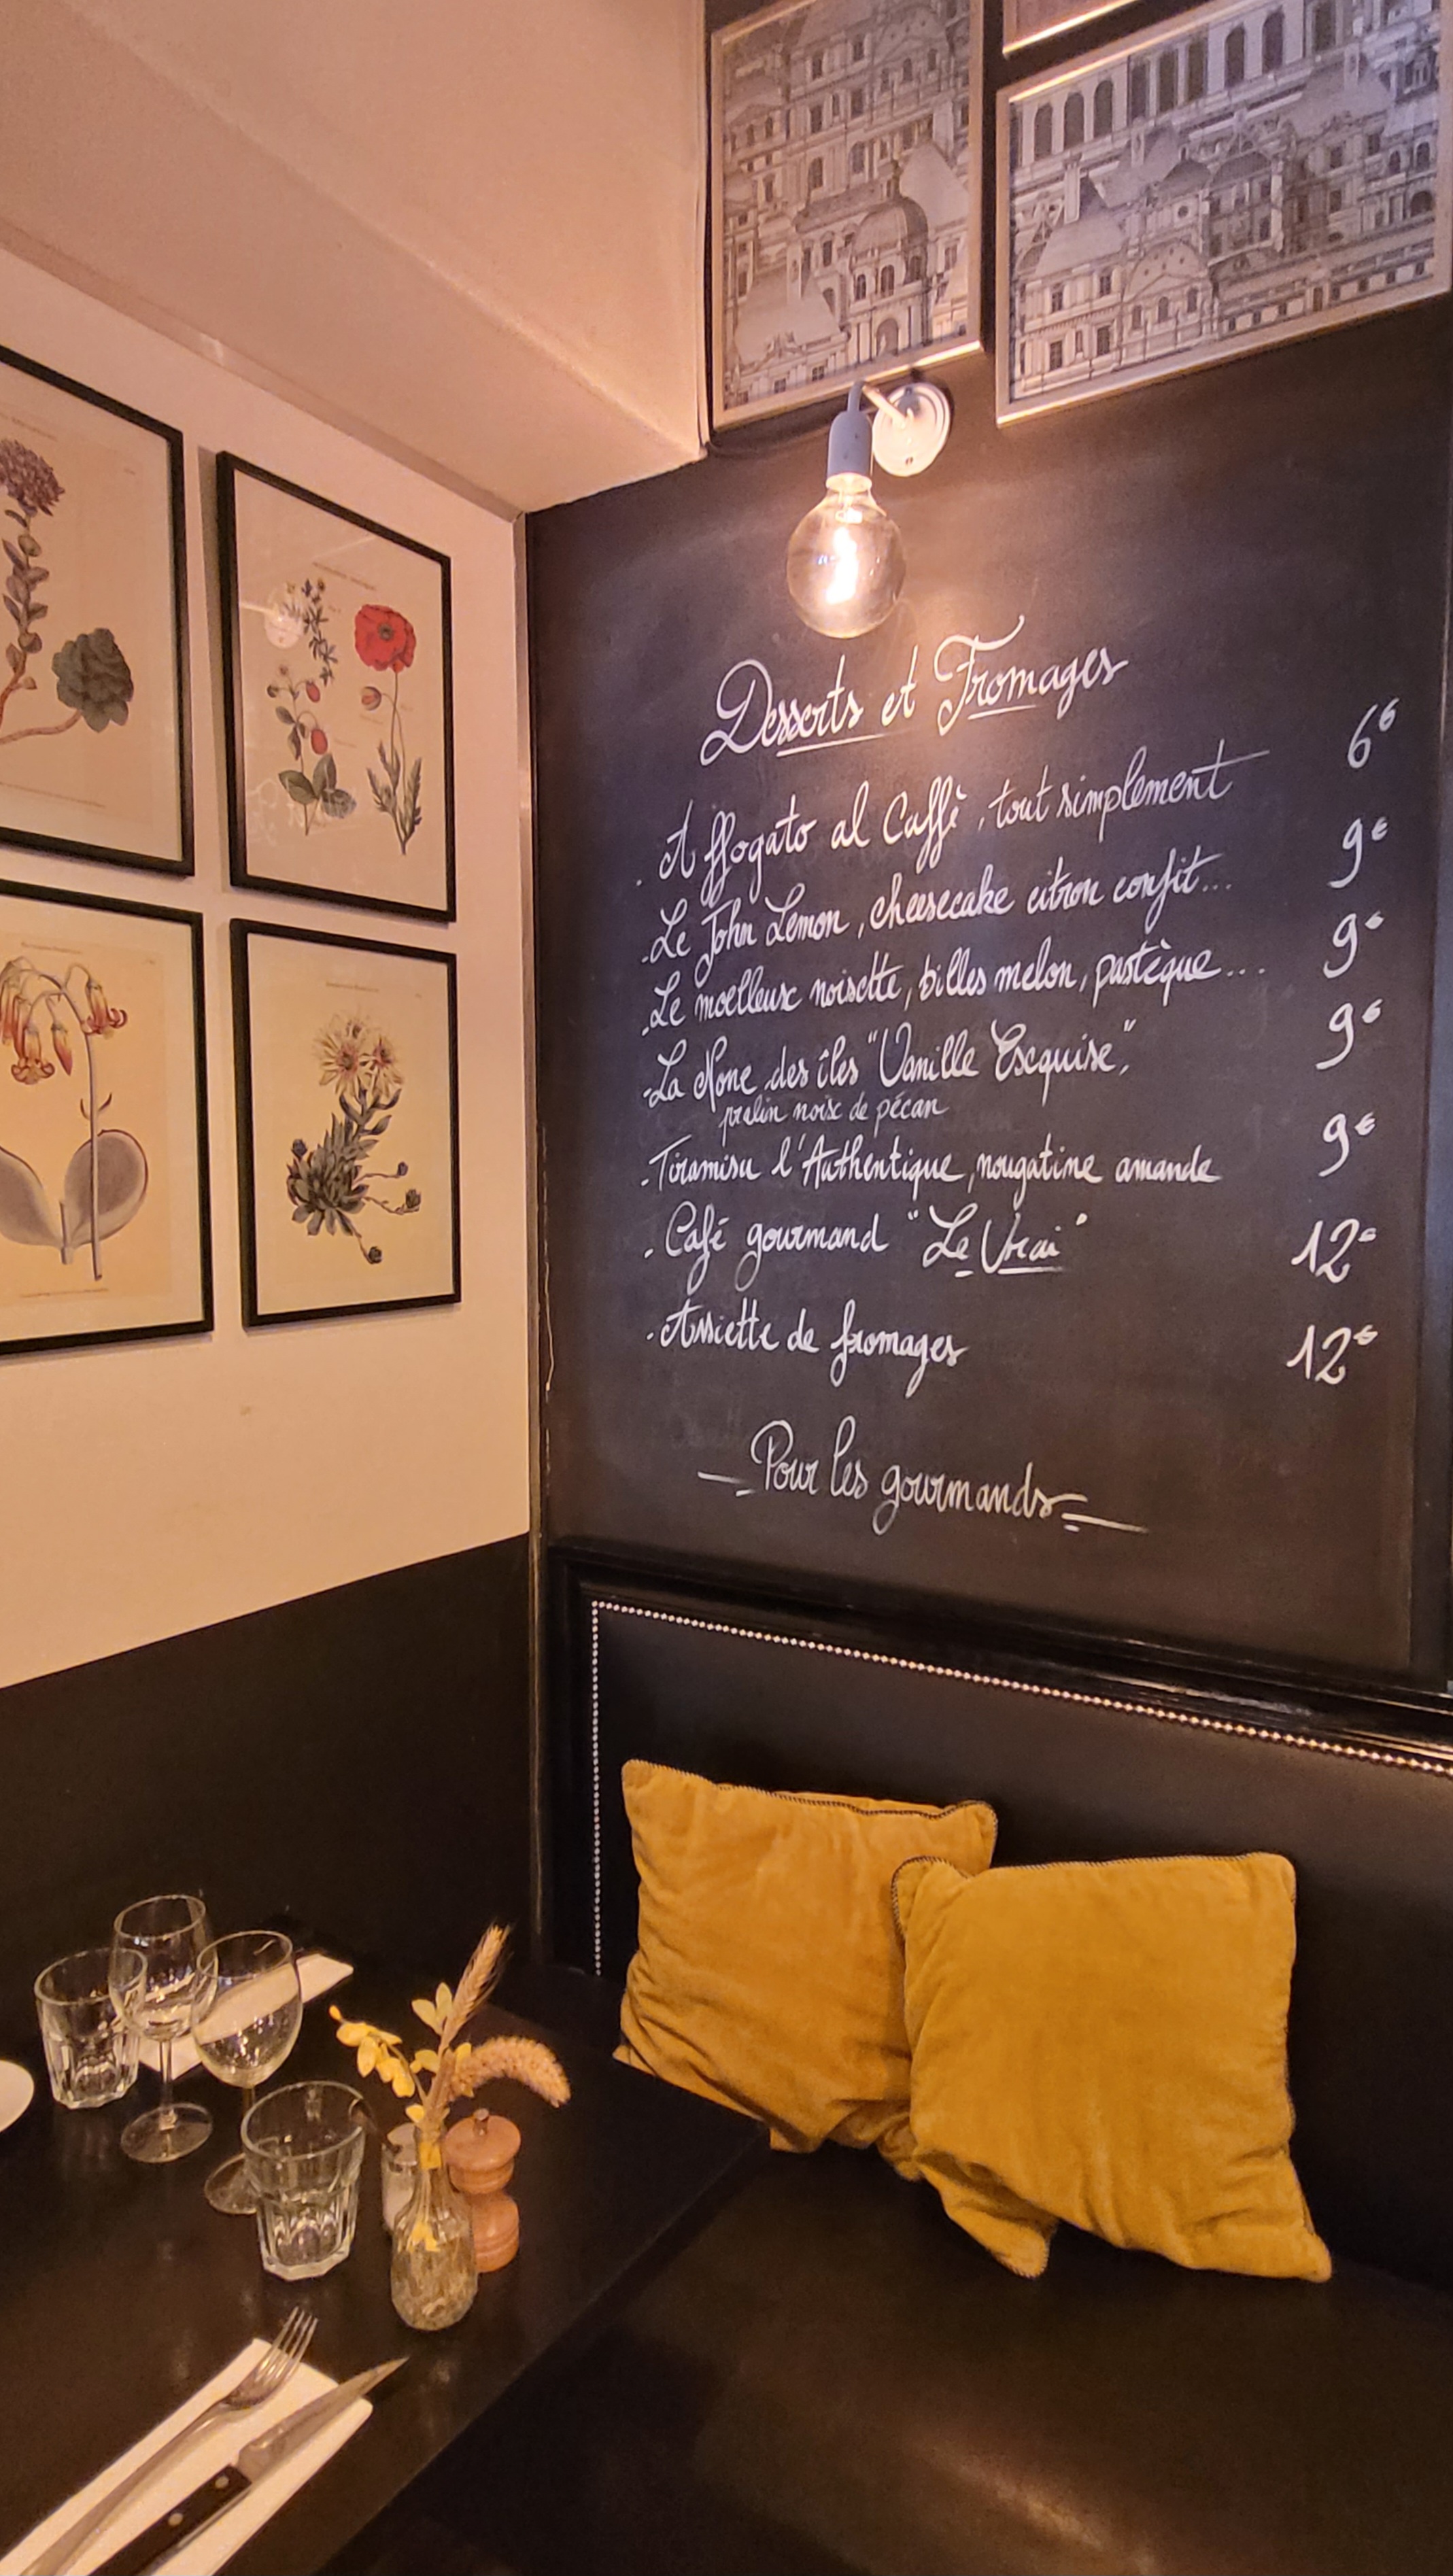 Desserts et Fromages
. Affogato al Caffè, tout simplement 6€
- Le John Lemon, cheesecake citron confit... 9€
- Le moelleux noisette, billes melon, pastèque... 9€
- La None des îles "Vanille Exquise", 9€
pralin noix de pécan
- Tiramisu l'Authentique, nougatine amande 9€
. Café gourmand "Le Vrai" 12€
. Assiette de fromages 12€
Pour les gourmands